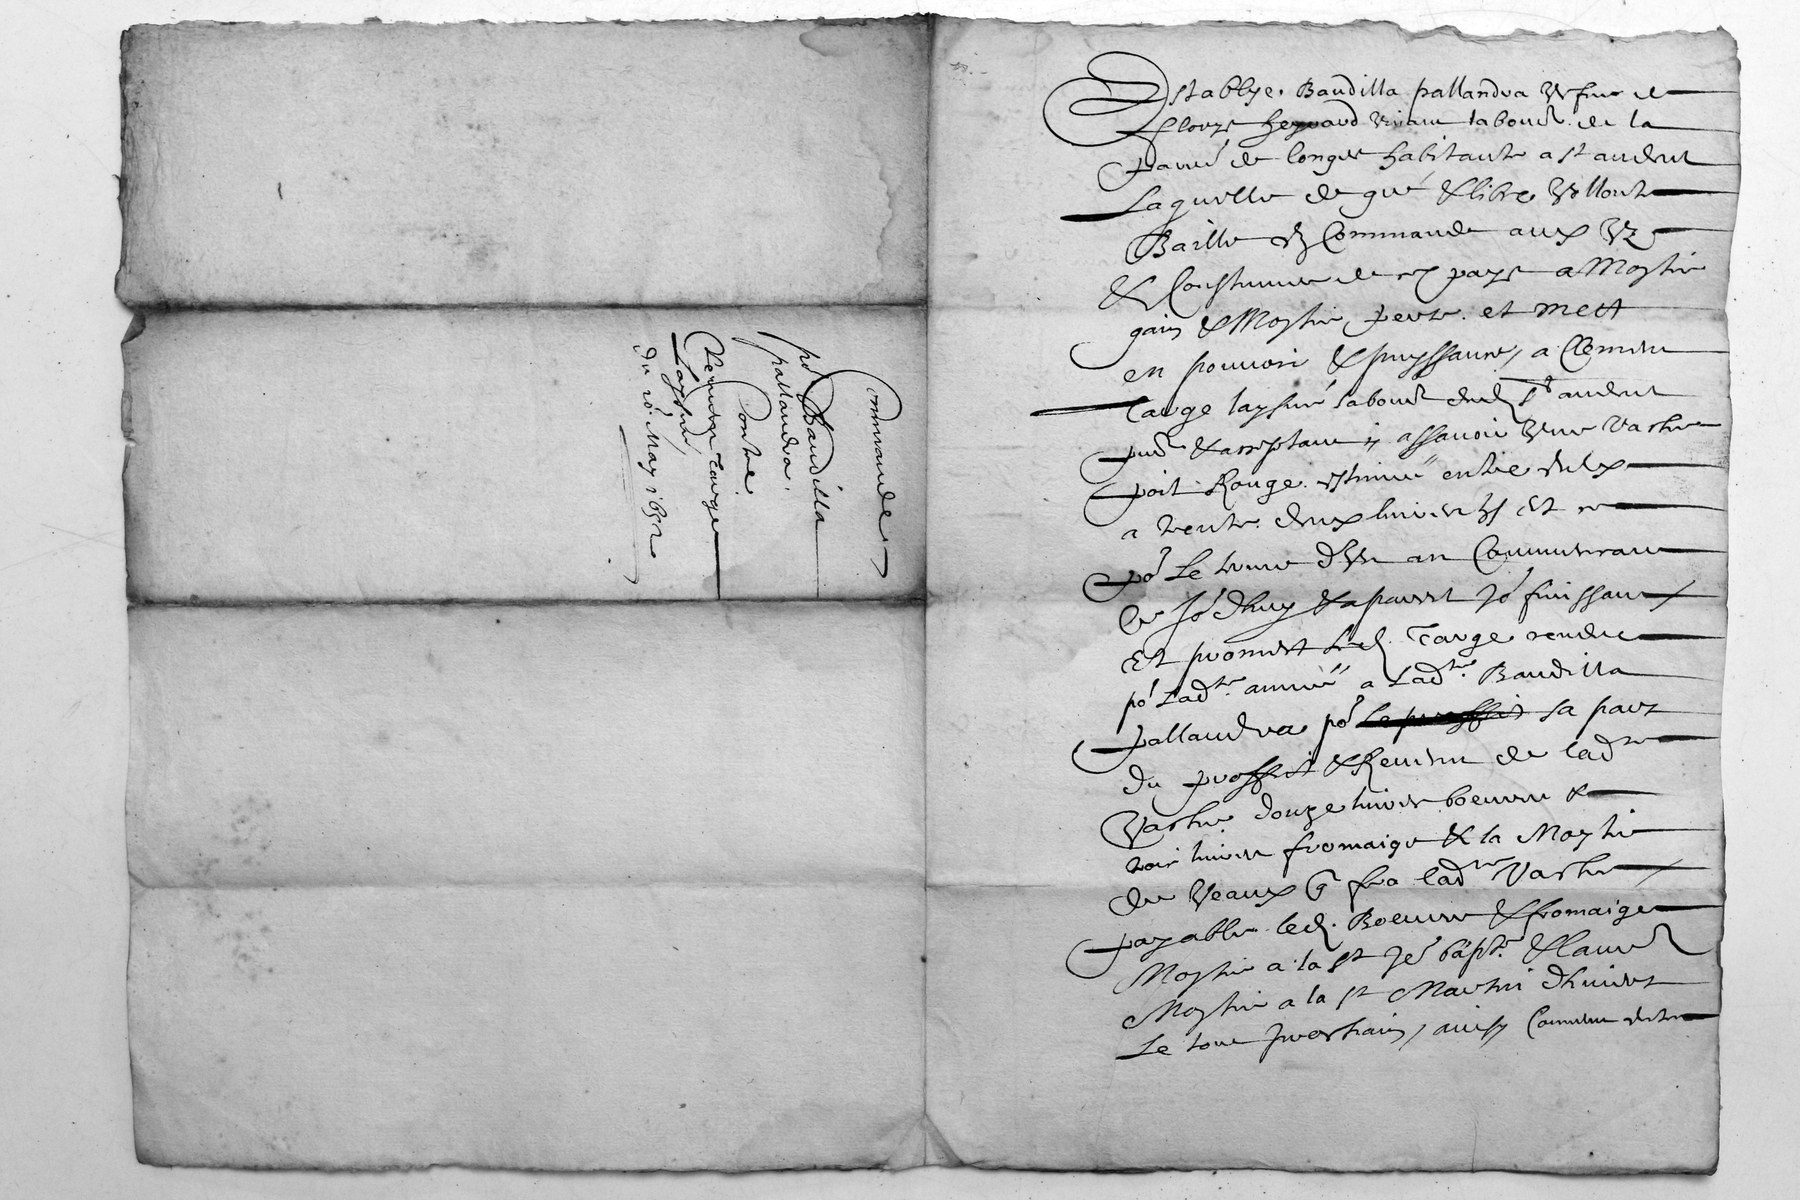 Commande
po.r Baudilla
pallandra.
Contre
Clemens Targe
Laysné,
du 20.e May 1652
Establye. Baudilla pallandra vefue de
Heyraud vivant labour.r de la
de longes habitante a st andeol
Laquelle de gré & libre vollonté
Baille en Commande aux uz
& Coustumes de ce pays a Moytie
gain & Moytie perte. et mett
en pouvoir & puyssance, a Clemens
Targe laysné labour.r dud. st andeol
pnt & acceptant assavoir une vache
poil Rouge. estimée entre eulx
a trente. deux livres Et ce
po.r Le terme d'un an Commencant
Ce jo.rdhuy & a pareil jo.r finissant
Et promet led. Targe rendre
po.r Ladte. année a Ladte. Baudilla
pallandra po.r le proffit sa part
du proffit & Revenu de ladte
Vache douze livres boeurre &
livres fromaige & la Moytie
des Veaux q fera ladte Vache
payable. led. Boeurre & fromaige
Moytie a la st Jea bapte. & lautre
Moytie a la st Martin dhivert
Le tout prochain, ainsy Comme